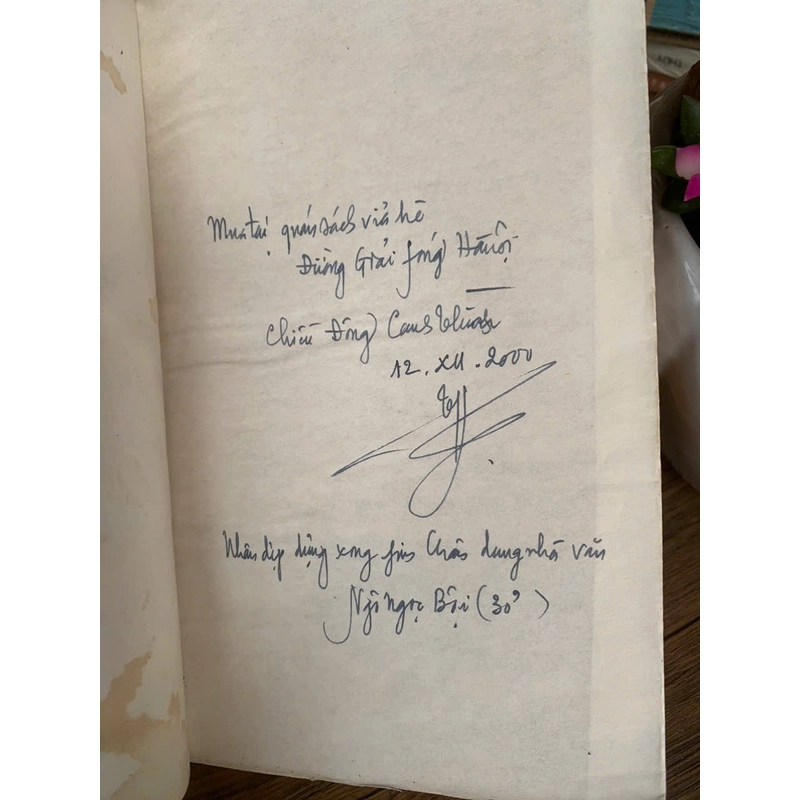 Mua tại quán sách vỉa hè
Đường Giải fóng Hà Nội
Chiều Đông Canh thìn
12.XII.2000
Nhân dịp dựng xong fim Chân dung nhà văn
Ngô Ngọc Bội (30')
THUY